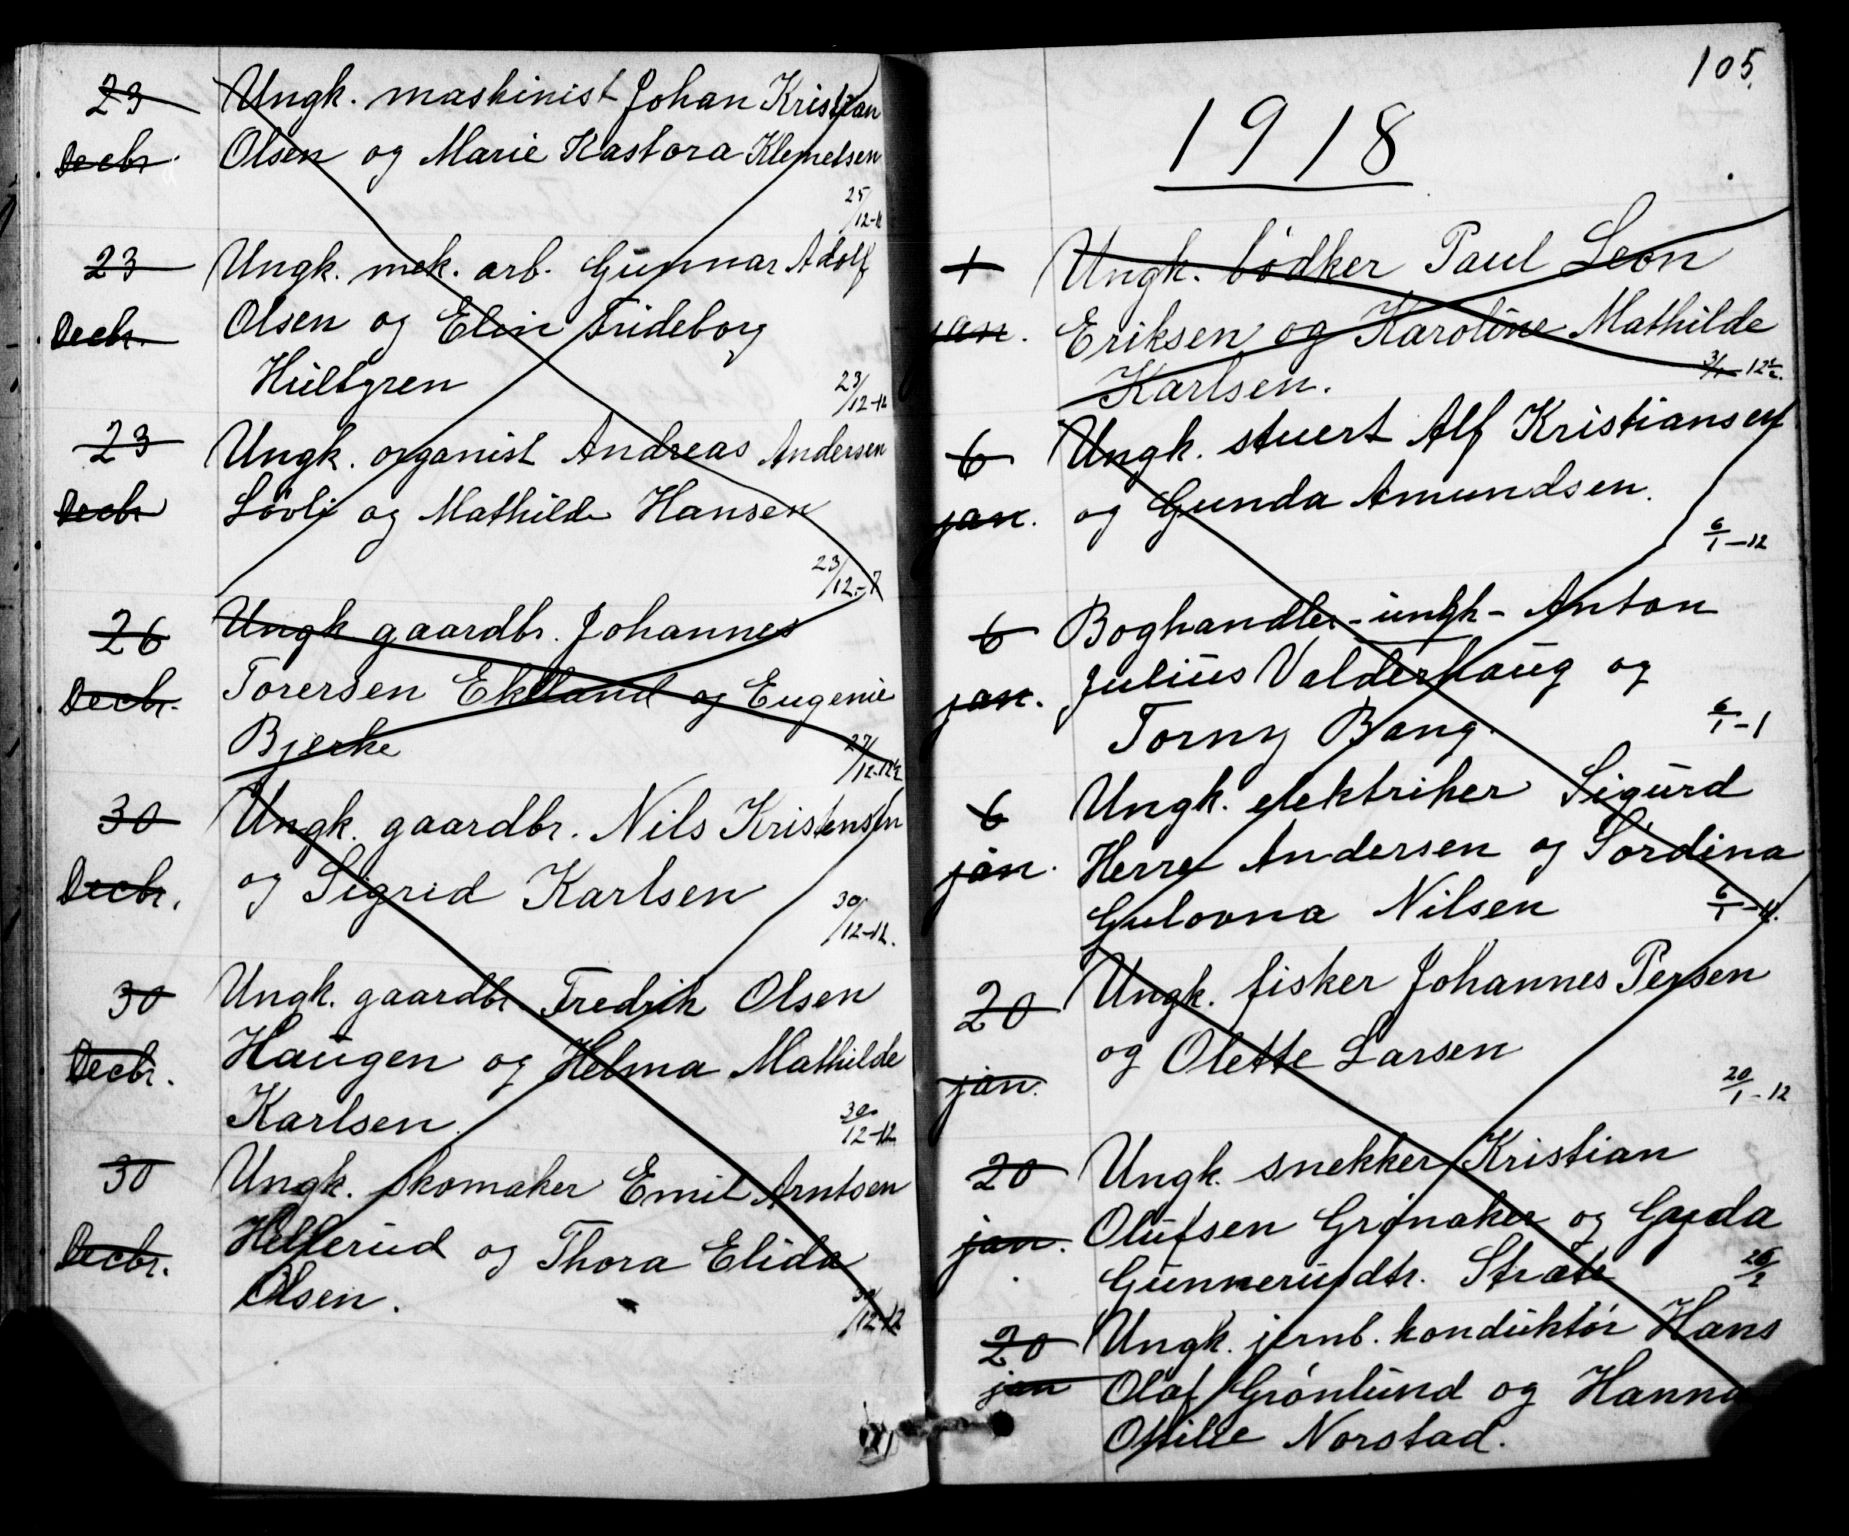 23 Ungk. maskinist Johan Kristian
Decbr. Olsen og Marie Kastora Klemetsen
25/12-11
23 Ungk. mek. arb. Gunnar Adolf
Decbr. Olsen og Elin Frideborg
Hultgren 23/12-12
23 Ungk. organist Andreas Andersen
Decbr Løvli og Mathilde Hansen
23/12-7
26 Ungk gaardbr. Johannes
Decbr. Torersen Ekeland og Eugenie
Bjerke 27/12-12½
30 Ungk. gaardbr. Nils Kristensen
Decbr. og Sigrid Karlsen 30/12-12.
30 Ungk. gaardbr. Fredrik Olsen
Decbr. Haugen og Helma Mathilde
Karlsen. 30/12-12
30 Ungk. skomaker Emil Arntsen
Decbr. Hellerud og Thora Elida
Olsen. 30/12-12
105.
1918
1 Ungk. bødker Paul Leon
jan. Eriksen og Karoline Mathilde
Karlsen. 3/1-12½.
6 Ungk. stuert Alf Kristiansen
jan. og Gunda Amundsen.
6/1-12
6 Boghandler-ungk- Anton
jan. Julius Valderhaug og
Torny Bang. 6/1-1
6 Ungk. elektriker Sigurd
jan. Herre Andersen og Sørdina
Gulovna Nilsen 6/1
20 Ungk. fisker Johannes Persen
jan. og Olette Larsen
20/1-12
20 Ungk. snekker Kristian
jan. Olufsen Grinaker og Gyda
Gunnerusdtr. Stræte
20 Ungk. jernb. konduktør Hans
jan Olaf Grønlund og Hanna
Otilie Norstad.